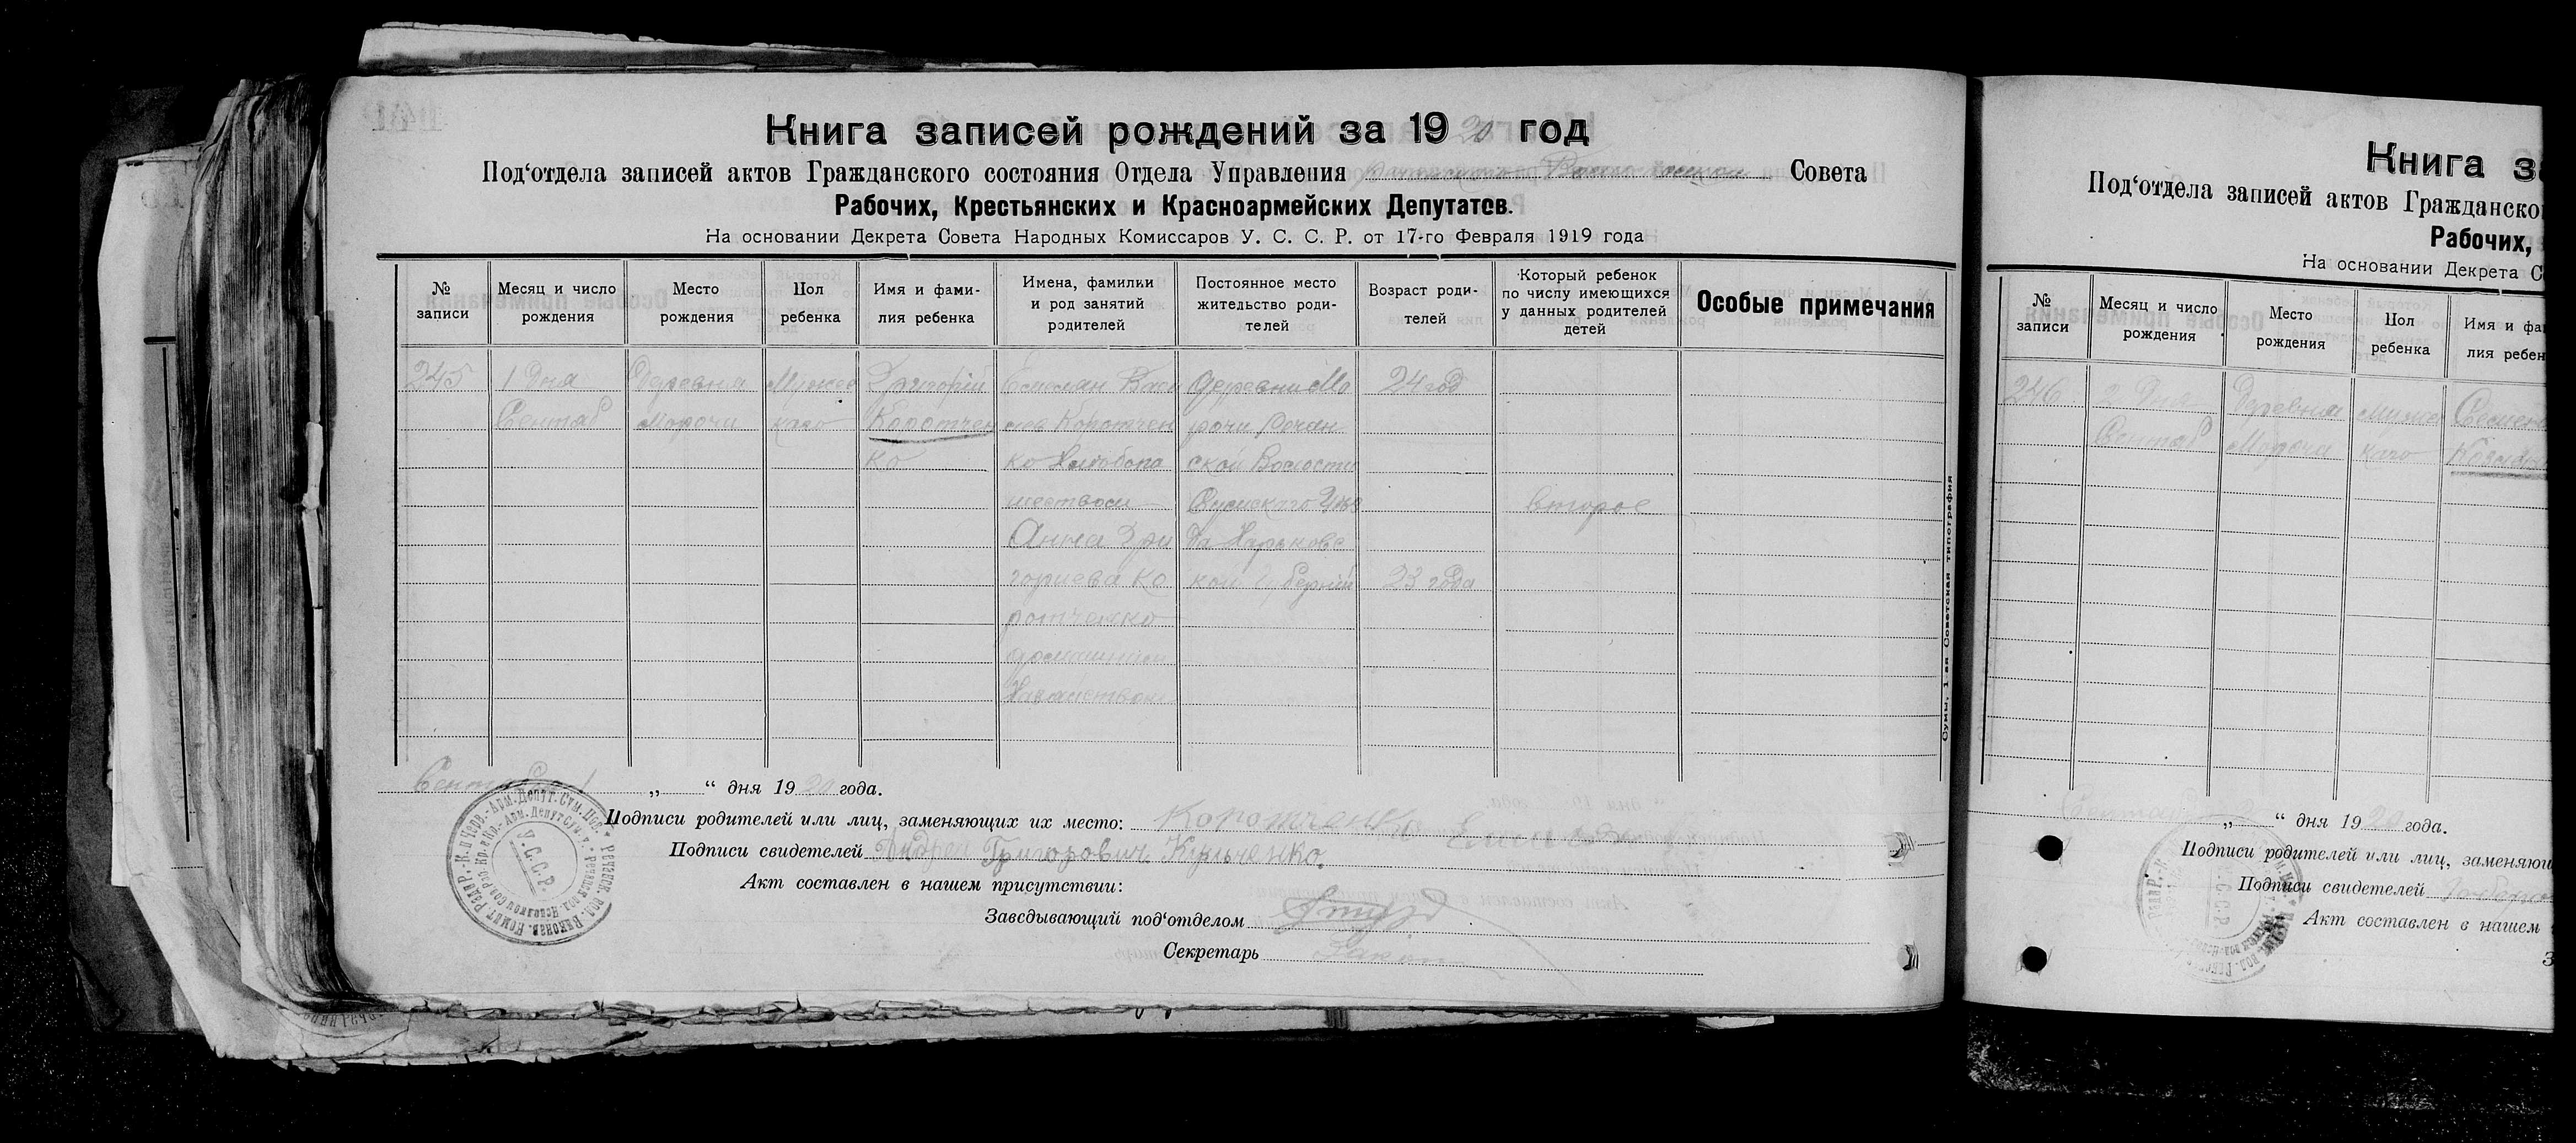 Книга записей рождений за 1920 год
Под‘отдела записей актов Гражданского состояния Отдела Управления Совета
Рабочих, Крестьянских и Красноармейских Депутатов.
На основании Декрета Совета Народных Комиссаров У. С. С. Р. от 17-го Февраля 1919 года
№ записи
Месяц и число рождения
Место рождения
Пол ребенка
Имя и фами-
лия ребенка
Имена, фамилии
и род занятий
родителей
Постоянное место
жительство роди-
телей
Возраст роди-
телей
Который ребенок
по числу имеющихся
у данных родителей
детей
Особые примечания
245
1 дня
Сентяб
Деревня
Морочи
Мужес
каго
Григорий
Коротчен
ко
Коротчен
ко Хлебопа
шеством
Анна Гри
гориева Ко
ротченко
Деревни Мо
рочи Речен
ской Волости
Сумскаго Уез
да Харьковс
кой Губернии
24 год
23 года
второе
Сумы, 1-ая Советская типография
Сентября 1 „ “ дня 1920 года.
Подписи родителей или лиц, заменяющих их место: Коротченко
Подписи свидетелей Андрей Григорович
Акт составлен в нашем присутствии:
Заведывающий под‘отделом
Секретарь
У.С.С.Р.
Книга за
Под‘отдела записей актов Гражданско
Рабочих,
На основании Декрета С
№ записи
Месяц и число рождения
Место рождения
Пол ребенка
Имя и фа
лия ребен
246
2 дня
Сентяб
Деревня
Морочи
Мужес
каго
„ “ дня 1920 года.
Подписи родителей или лиц, заменяю
Подписи свидетелей
Акт составлен в нашем